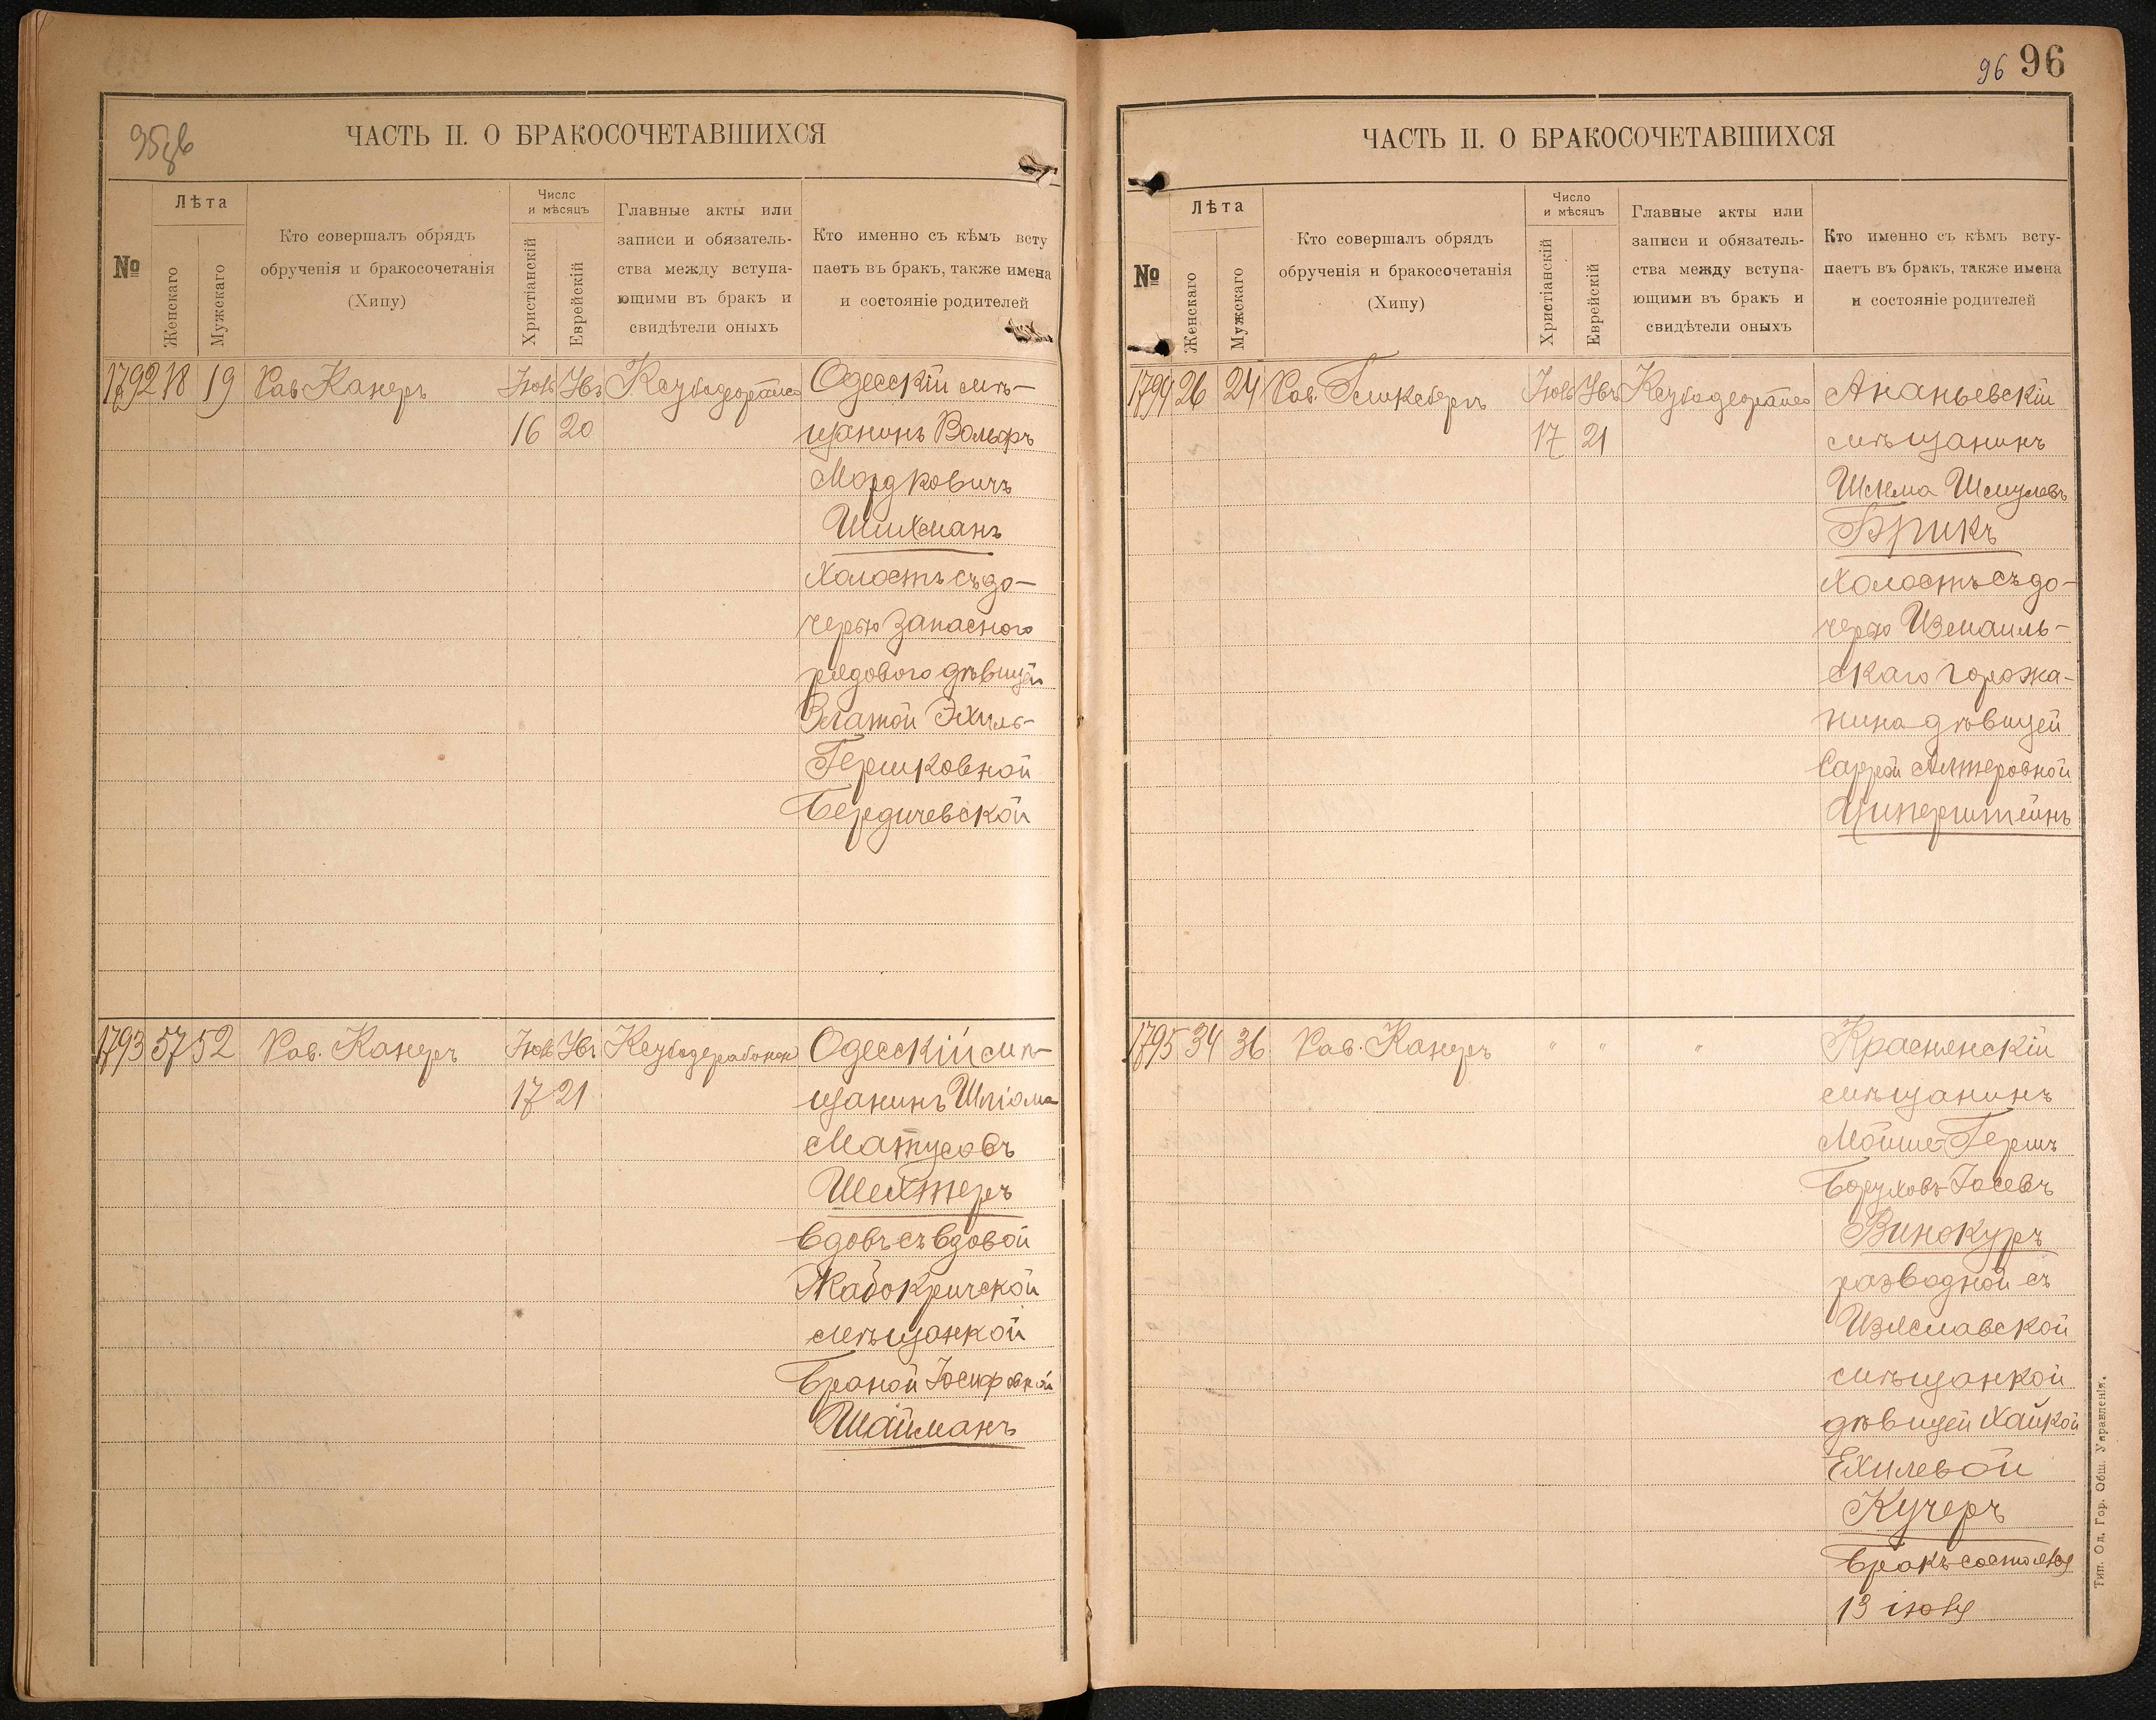 95 зв
ЧАСТЬ II. О БРАКОСОЧЕТАВШИХСЯ
№
Лѣта
Женскаго
Мужскаго
Кто совершалъ обрядъ
обрученія и бракосочетанія
(Хипу)
Число
и мѣсяцъ
Христіанскій
Еврейскій
Главные акты или
записи и обязатель-
ства между вступа-
ющими въ бракъ и
свидѣтели оныхъ
Кто именно съ кѣмъ всту
паетъ въ бракъ, также имена
и состояніе родителей
1792 18 19 Рав Канеръ
16 20
Одесскій мѣ-
щанинъ Вольфъ
Мордковичъ
Шихманъ
Холостъ съ до-
черью запасного
рядового дѣвицей
Златой Эхиль-
Гершковной
Бердичевской
1793 57 52 Рав. Канеръ
17 21
Одесскій мѣ-
щанинъ Шліома
Матусовъ
Шехтеръ
вдовъ съ вдовой
Жабокричской
мѣщанкой
Браной Іосифовной
Шайманъ
96 96
ЧАСТЬ II. О БРАКОСОЧЕТАВШИХСЯ
№
Лѣта
Женскаго
Мужскаго
Кто совершалъ обрядъ
обрученія и бракосочетанія
(Хипу)
Число
и мѣсяцъ
Христіанскій
Еврейскій
Главные акты или
записи и обязатель-
ства между вступа-
ющими въ бракъ и
свидѣтели оныхъ
Кто именно съ кѣмъ всту-
паетъ въ бракъ, также имена
и состояніе родителей
1794 26 24 Рав.
17 21
Ананьевскій
мѣщанинъ
Шлема Шмулевъ
Брикъ
Холостъ съ до-
черью Измаиль-
скаго горожа-
нина дѣвицей
Саррой Алтеровной
Циперштейнъ
1795 34 36 Рав. Канеръ " " "
Краснянскій
мѣщанинъ
Мойше-Гершъ
Боруховъ-Іосевъ
Винокуръ
разводной съ
Изяславской
мѣщанкой
дѣвицей Хайкой
Ехилевой
Кучеръ
Бракъ состоялся
13 іюля
Тип. Од. Гор. Общ. Управленія.